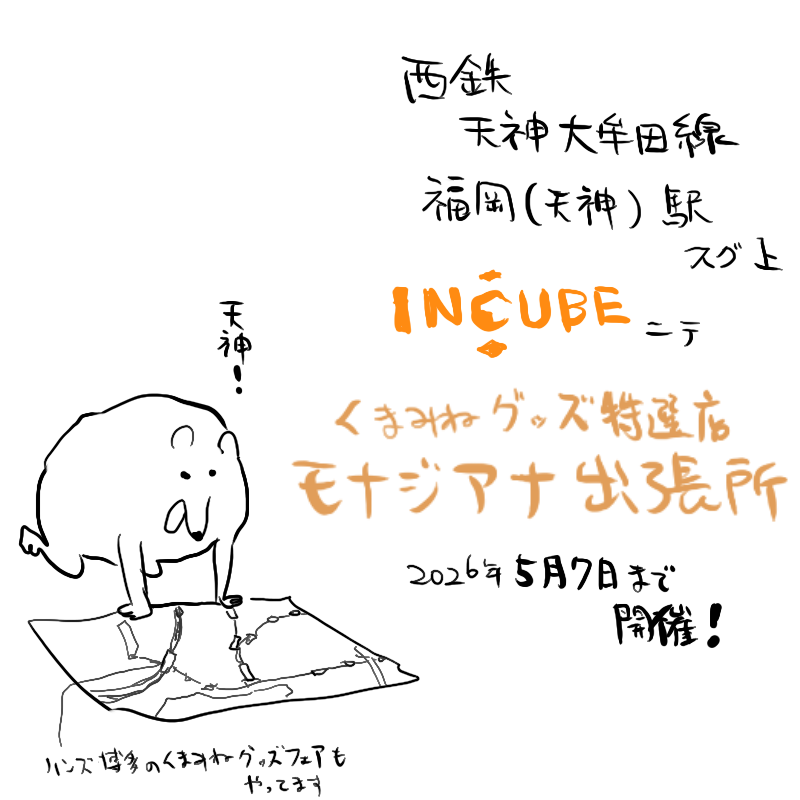 西鉄
天神大牟田線
福岡(天神)駅
スグ上
INCUBE ニテ
天神!
くまみねグッズ特選店
モナジアナ出張所
2026年5月7日まで
開催!
ハンズ博多のくまみねグッズフェアも
やってます